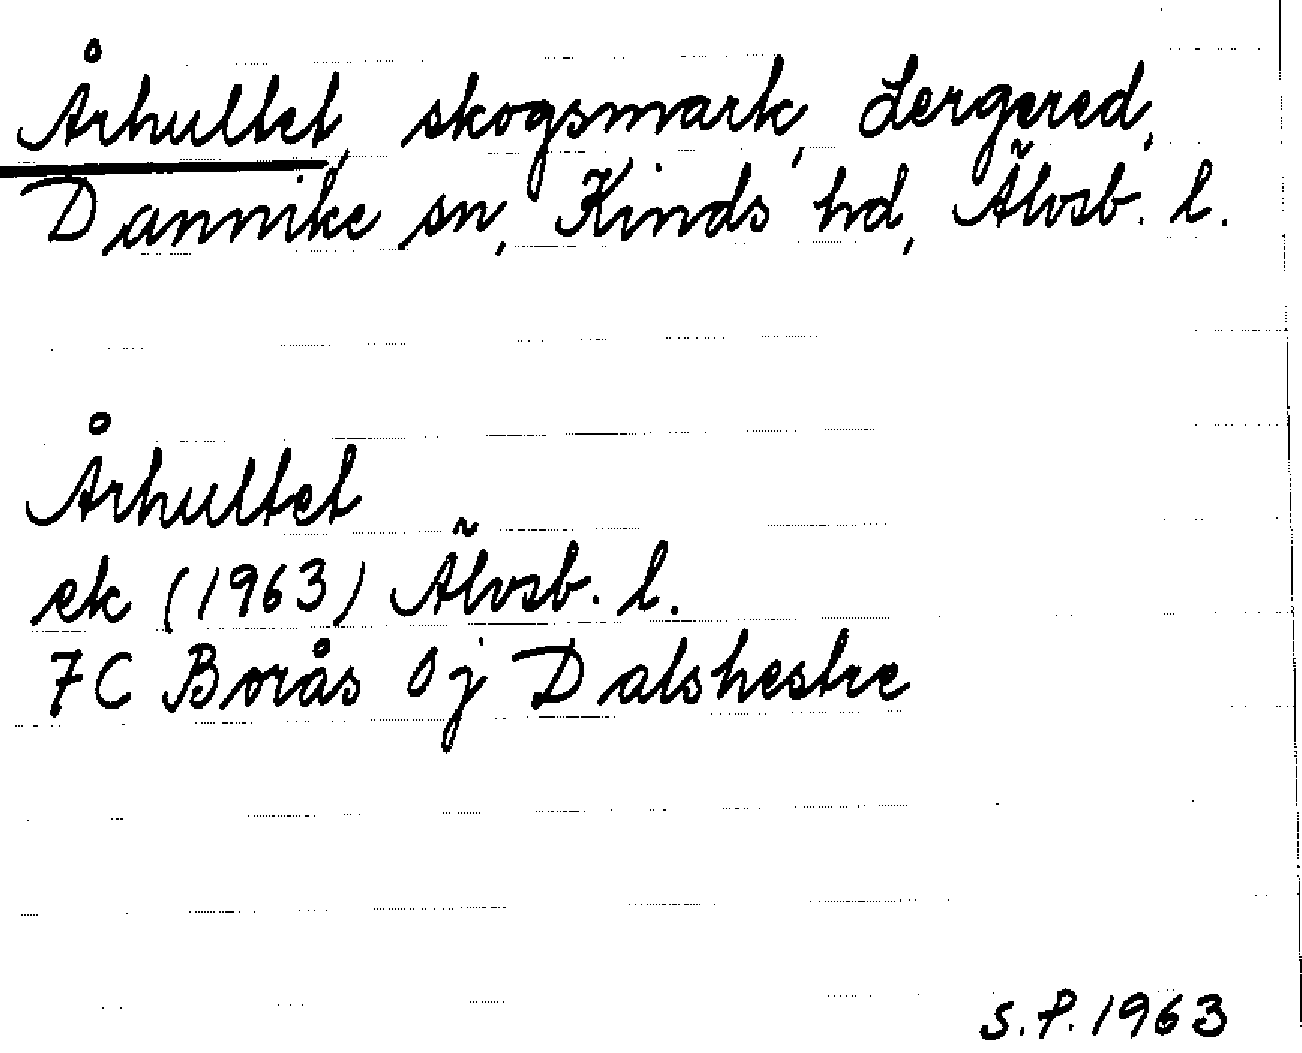 Århultet, skogsmark, Lergered,
Dannike sn, Kinds hd, Älvsb. l.
Århultet
ek (1963) Älvsb. l.
7C Borås 0j Dalshestre
S.P. 1963